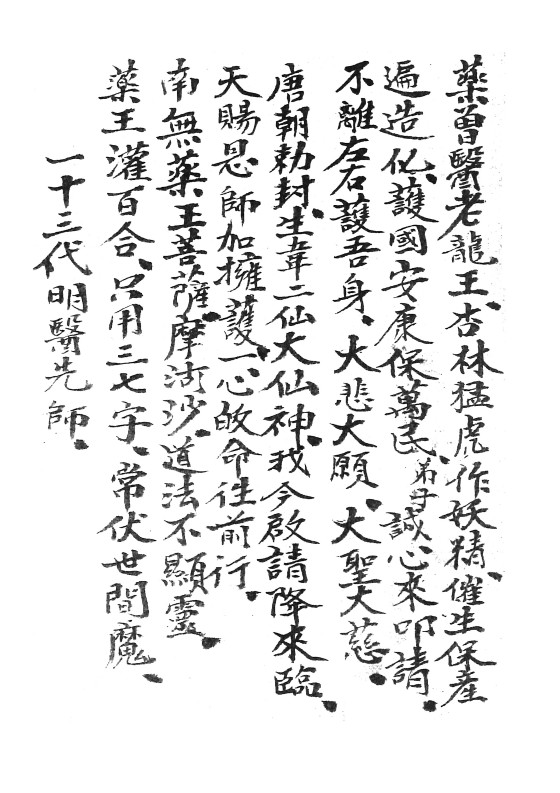 藥曽醫老龍王、杏林猛虎作妖精、催生保產
遍造化、護國安康保萬民、弟子誠心來叩請、
不離左右護吾身、大悲大願、大聖大慈、
唐朝勅封、生韋二仙大仙神、我今啟請降來臨、
天賜恩師加擁護、一心皈命往前行、
南無藥王菩薩、摩訶沙、道法不顯靈、
藥王灌百合、只用三七字、常伏世間魔、
一十三代明醫先師、